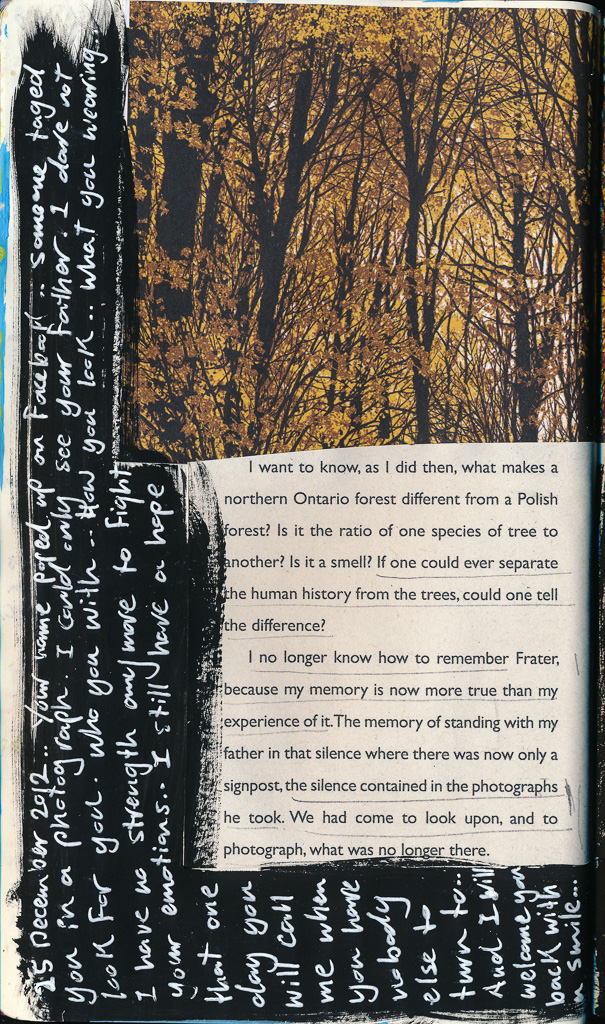 25 December 2012... Your name poped up on Facebook.. Someone taged
you in a photograph. I could only see your father. I dare not
look for you. Who you with.. How you look.. What you wearing..
I have no strength anymore to fight
your emotions.. I still have a hope
that one
day you
will call
me when
you have
nobody
else to
turn to...
And I will
welcome you
back with
a smile...
I want to know, as I did then, what makes a
northern Ontario forest different from a Polish
forest? Is it the ratio of one species of tree to
another? Is it a smell? If one could ever separate
the human history from the trees, could one tell
the difference?
I no longer know how to remember Frater,
because my memory is now more true than my
experience of it. The memory of standing with my
father in that silence where there was now only a
signpost, the silence contained in the photographs
he took. We had come to look upon, and to
photograph, what was no longer there.